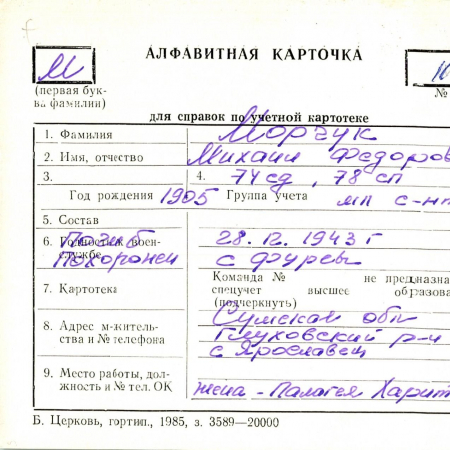 М
АЛФАВИТНАЯ КАРТОЧКА
10
(первая бук-
ва фамилии)
№
для справок по учетной картотеке
1. Фамилия Морчук
2. Имя, отчество Михаил Федоров
3. 4. 74 сд, 78 сп
Год рождения 1905 Группа учета мл с-нт
5. Состав
6. Полностью воен- Погиб 28.12.1943 г
службе Похоронен с Фуревы
Команда № не предназна
7. Картотека спецучет высшее образова
(подчеркнуть)
Сумская обл
8. Адрес м-житель- Глуховский р-н
ства и № телефона с Ярославец
9. Место работы, дол-
жность и № тел. ОК жена - Палагея Харит
Б. Церковь, гортип., 1985, з. 3589—20000